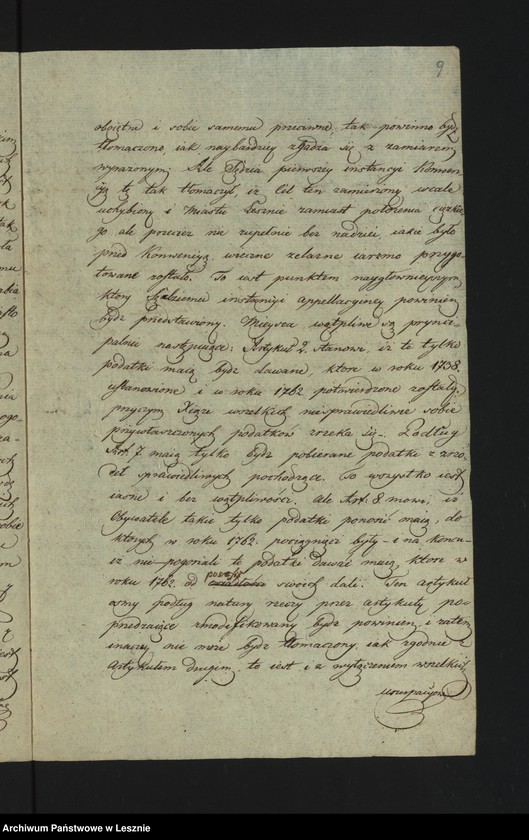 9
oboiętne i sobie samemu przeciwne, tak powinno bydź
tłomaczone, iak naybardziey zgadza się z zamiarem
wyrażonym; Ale Sędzia pierwszey instancyi Konwen-
cyą tę tak tłomaczył, iż cel ten zamierzony wcale
uchybiony i Miastu Lesznie zamiast położenia cięzkie-
go ale przecież nie zupełnie bez nadziei iakie było
przed Konwencyą, wieczne żelazne iarzmo przygo-
towane zostało. To iest punktem naygłównieyszym,
ktory Sędziemu instancyi appellacyiney powinien
bydź przedstawiony. Mieysca wątpliwe są pryncy-
palnie następuiące: Artykuł 2. stanowi, iż te tylko
podatki maią bydź dawane, ktore w roku 1738.
ustanowione i w roku 1762 potwierdzone zostały,
przyczym Xiąże wszelkich niesprawiedliwie sobie
przywłaszczonych podatków zrzeka się. Podług
Art. 7. maią tylko bydź pobierane podatki z źrzo-
deł sprawiedliwych pochodzące. To wszystko iest
iasne i bez wątpliwości, ale Art: 8 mowi, iż
Obywatele takie tylko podatki ponosić maią, do
ktorych w roku 1762. pociągnięci byli - i na koniec
iż nie-posessionati te podatki dawać maią, ktore w
roku 1762. od posessyi swoich dali. Ten artykuł
osmy podług natury rzeczy przez artykuły po-
przedzaiące zmodifikowany bydź powinien, i zatem
inaczey nie może bydź tłomaczony, iak zgodnie z
Artykułem drugim, to iest i z wyłączeniem wszelkich
usurpacyi
Archiwum Państwowe w Lesznie